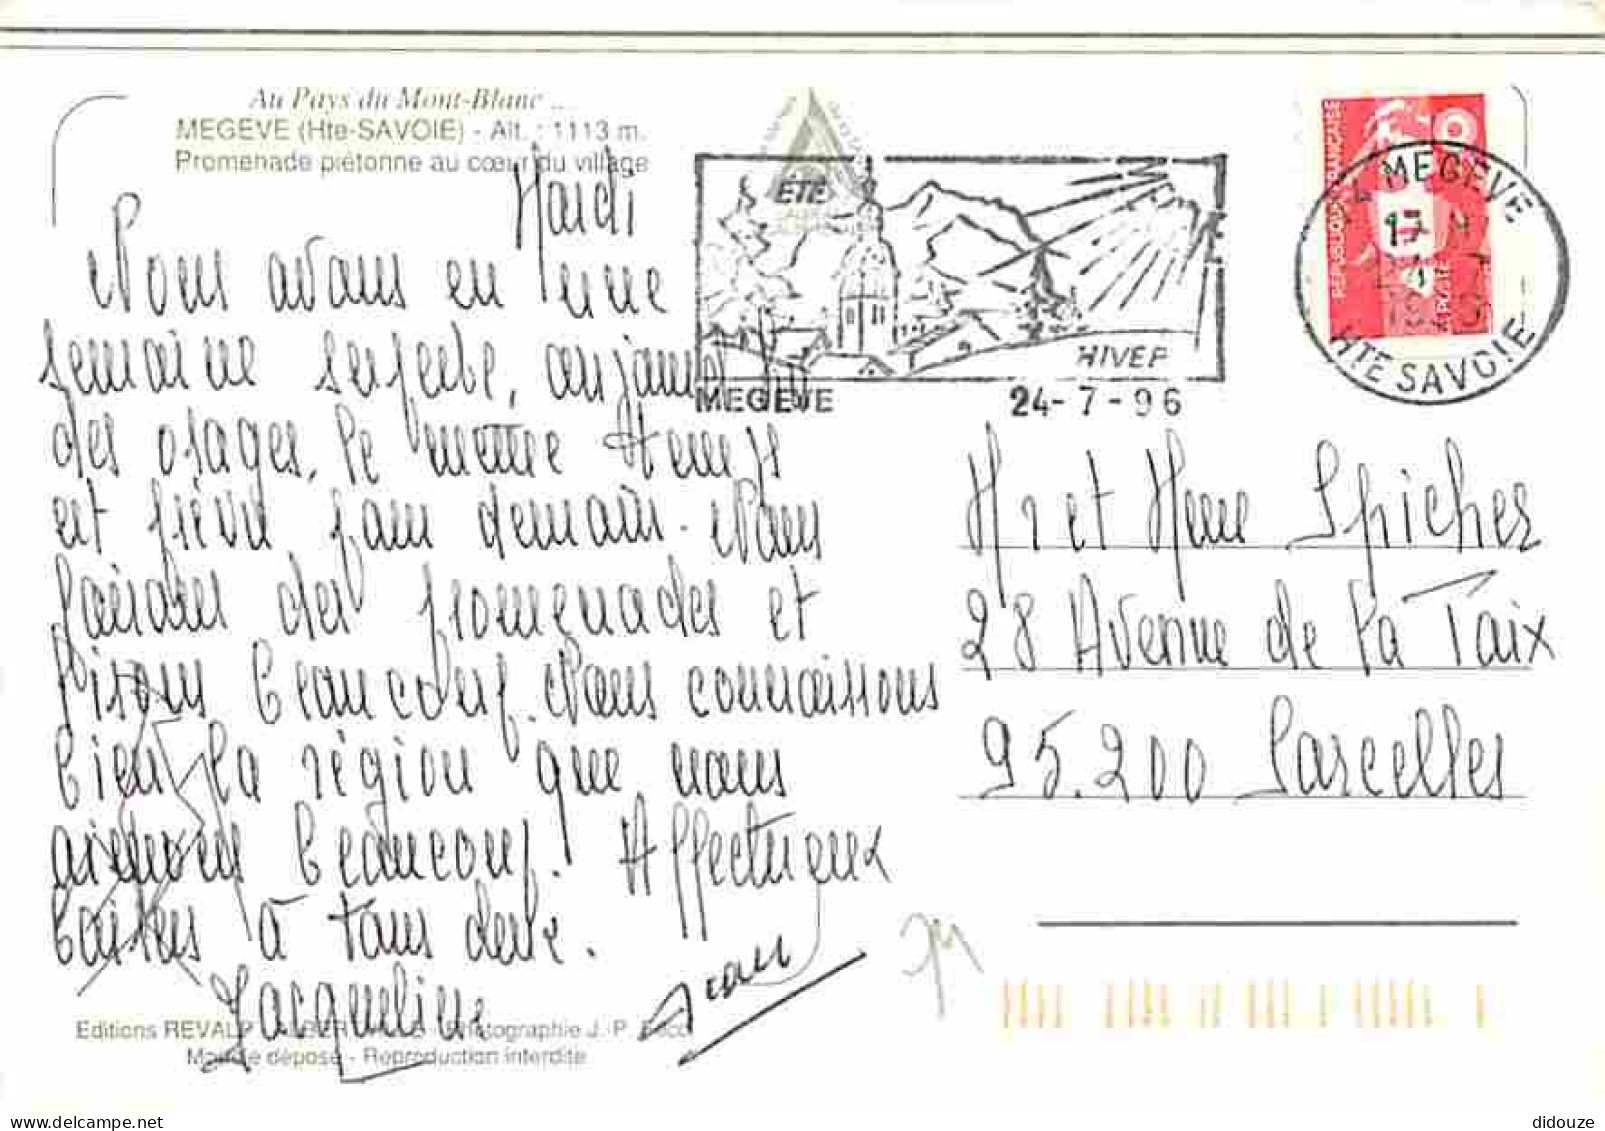 Au Pays du Mont-Blanc ...
MEGEVE (Hte-SAVOIE) - Alt. : 1113 m.
Promenade piétonne au cœur du village
Mardi
Nous avons eu une
semaine superbe, aujourd'hui
des orages, le mettre
est prévu pour demain. Nous
faisons des promenades et
lisons beaucoup. Nous connaissons
bien la région que nous
aimons beaucoup. Affectueux
baisers à tous deux.
Jacqueline Jean
Editions REVALP - ALBERTVILLE - Photographie J.-P.
Modèle déposé - Reproduction interdite
ÉTÉ
HIVER
MEGEVE 24-7-96
REPUBLIQUE FRANÇAISE
LA POSTE
74 MEGEVE
17 H
HTE SAVOIE
Mr et Mme Spicher
28 Avenue de la Paix
95.200 Sarcelles
didouze